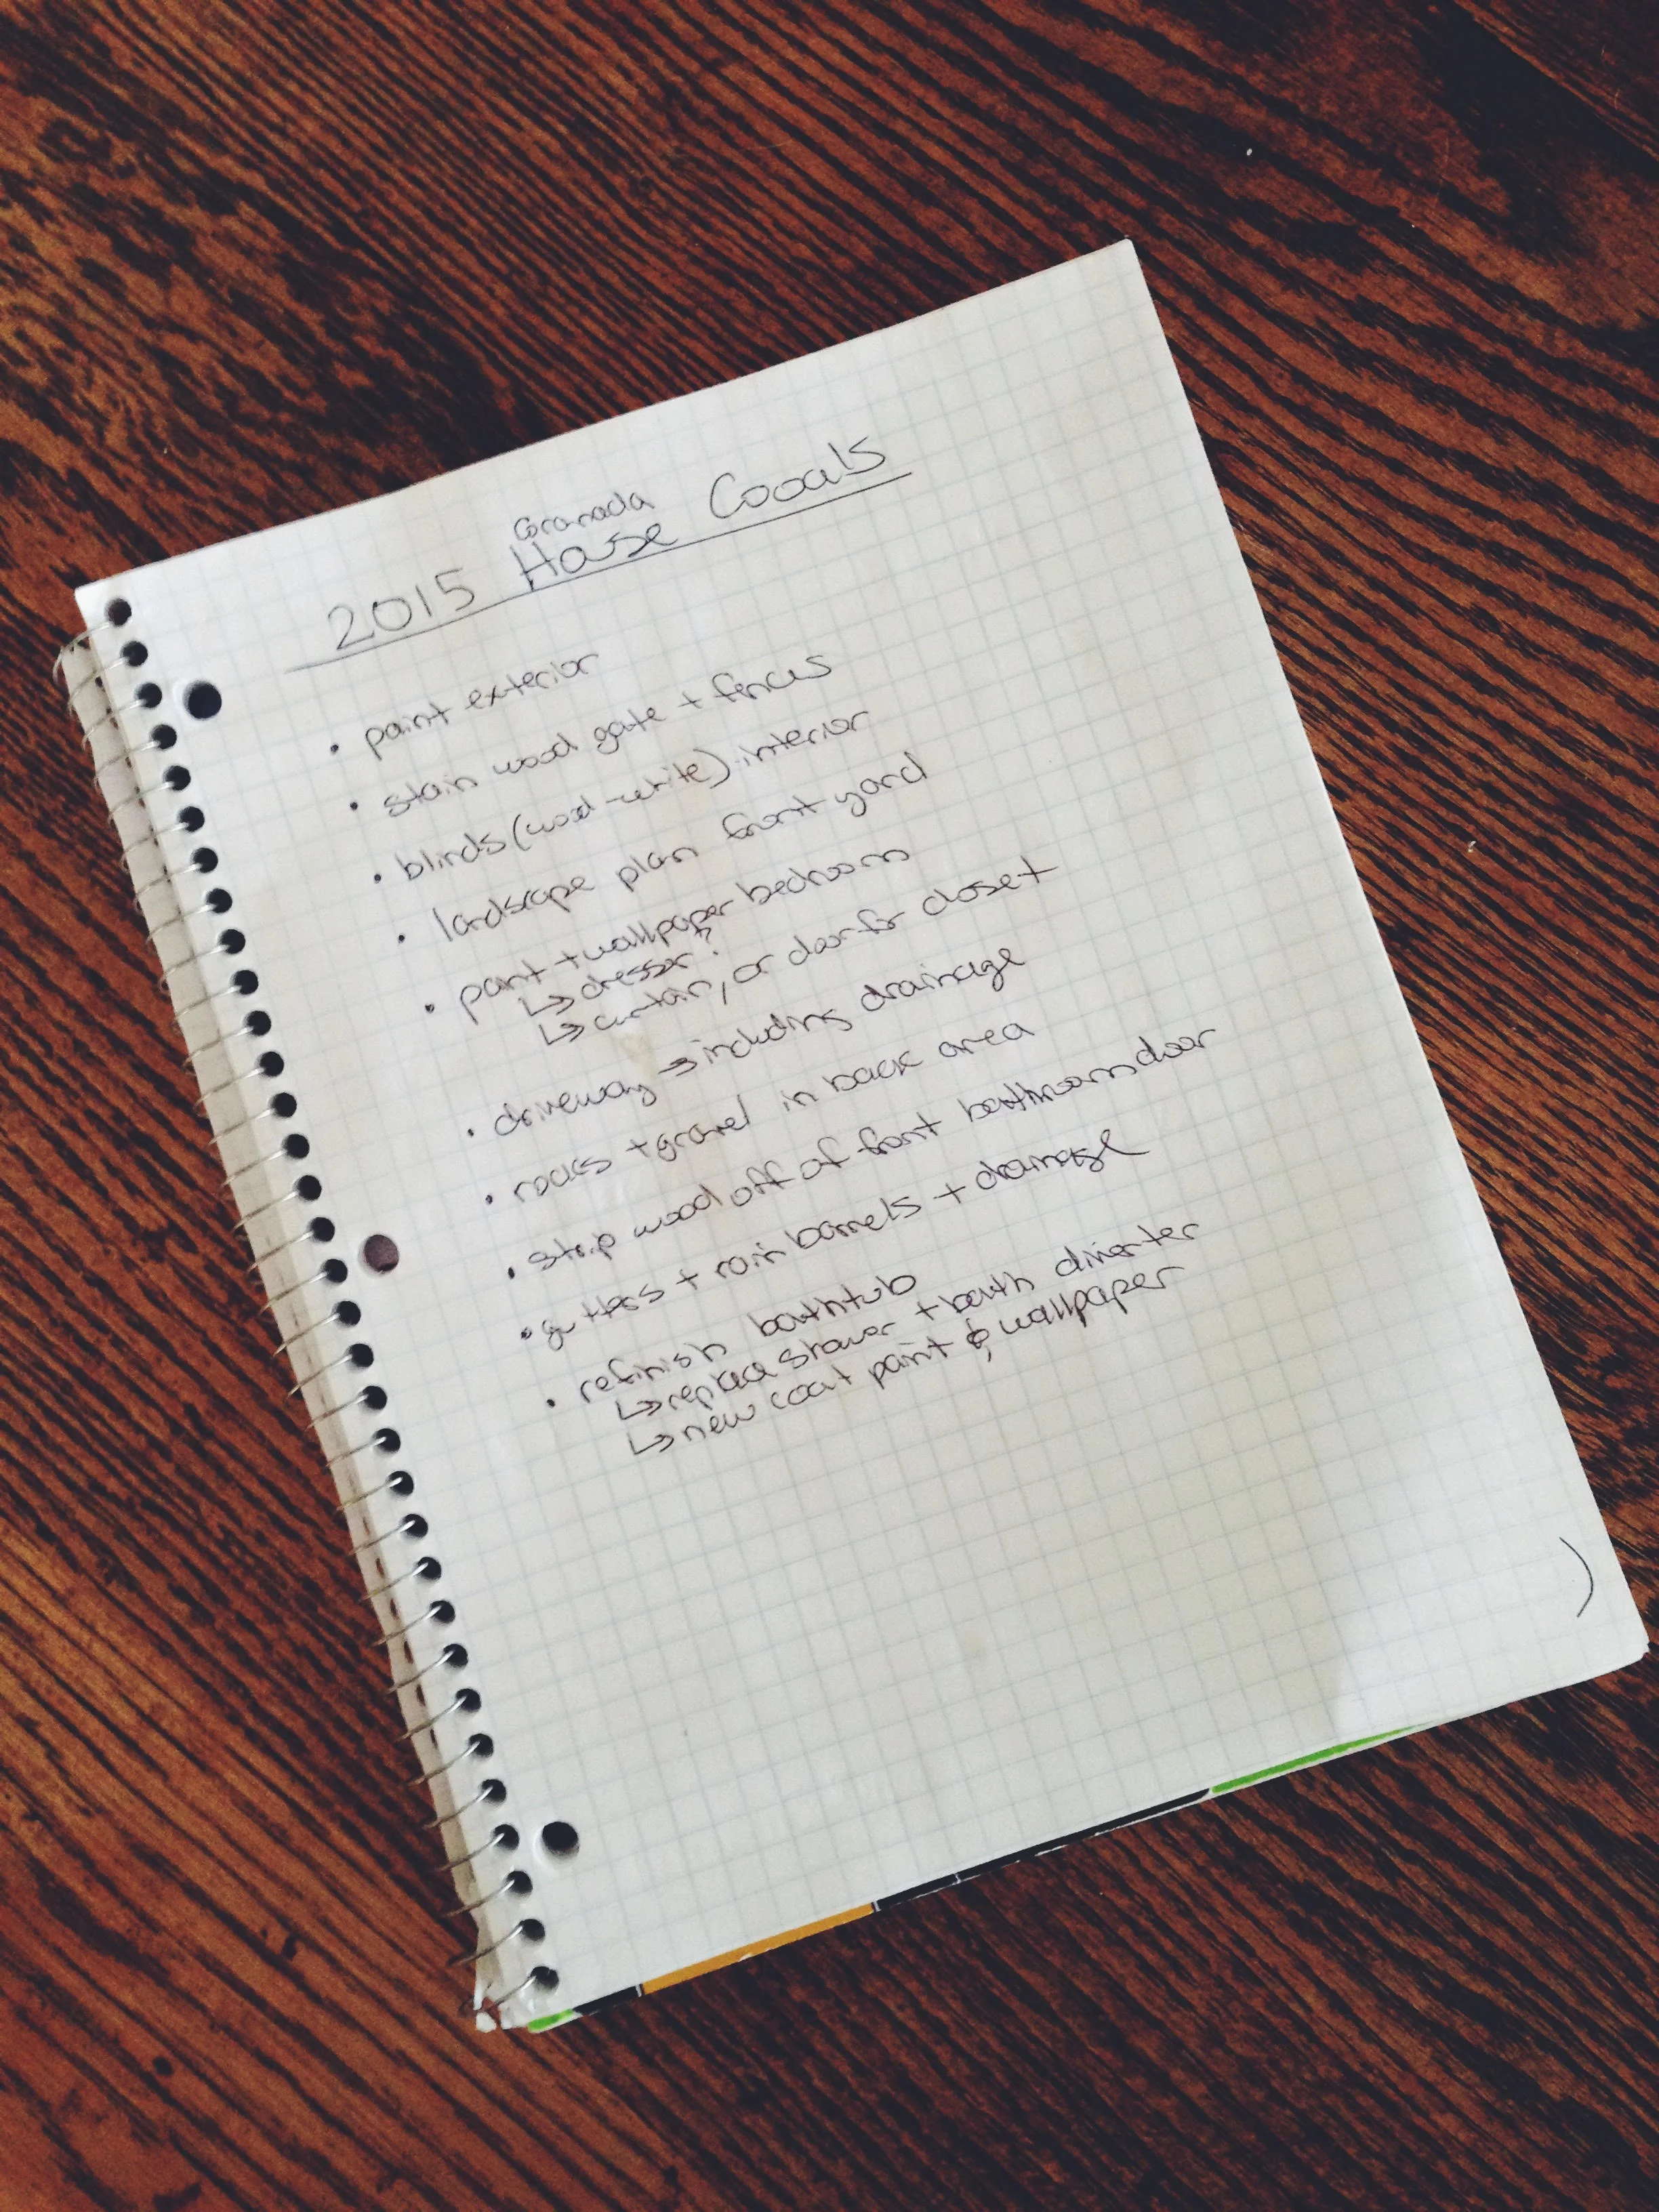 Granada
2015 House Goals
• paint exterior
• stain wood gate + fences
• blinds (wood - white) interior
• landscape plan front yard
• paint + wallpaper bedroom
↳ dresser?
↳ curtain, or door for closet
• driveway → including drainage
• rocks + gravel in back area
• strip wood off of front bathroom door
• gutters + rain barrels + drainage
• refinish bathtub
↳ replace shower + bath diverter
↳ new coat paint & wallpaper